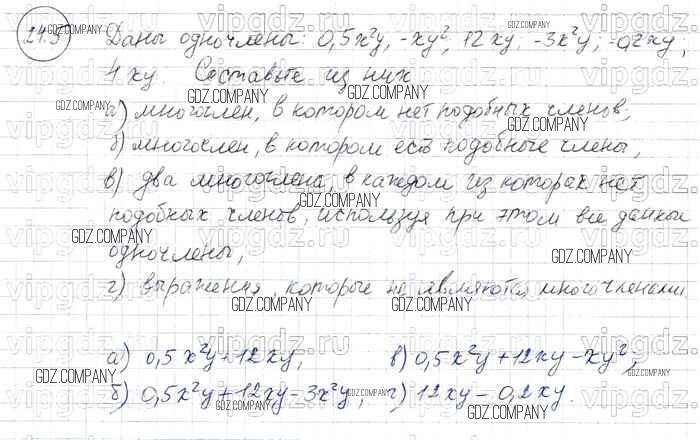 24.5 Даны одночлены: 0,5x²y, -xy², 12xy, -3x²y, -0,2xy,
1xy. Составьте из них
а) многочлен, в котором нет подобных членов;
б) многочлен, в котором есть подобные члены;
в) два многочлена, в каждом из которых нет
подобных членов, используя при этом все данные
одночлены;
г) выражения, которые не являются многочленами
а) 0,5x²y+12xy; в) 0,5x²y+12xy-xy²;
б) 0,5x²y+12xy-3x²y; г) 12xy-0,2xy.
vipgdz.ru
GDZ.COMPANY